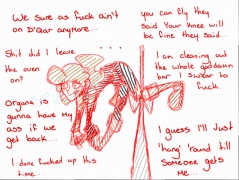 We sure as fuck ain't
on D'Qar anymore...
Shit did I leave ...
the oven
on?
Organa is
gunna have my
ass if we
get back...
I done fucked up this
time...
you can fly they
said. Your knee will
be fine they said...
I am cleaning out
the whole goddamn
bar I swear to
fuck.
I guess I'll Just
'hang' round till
Someone gets
me...